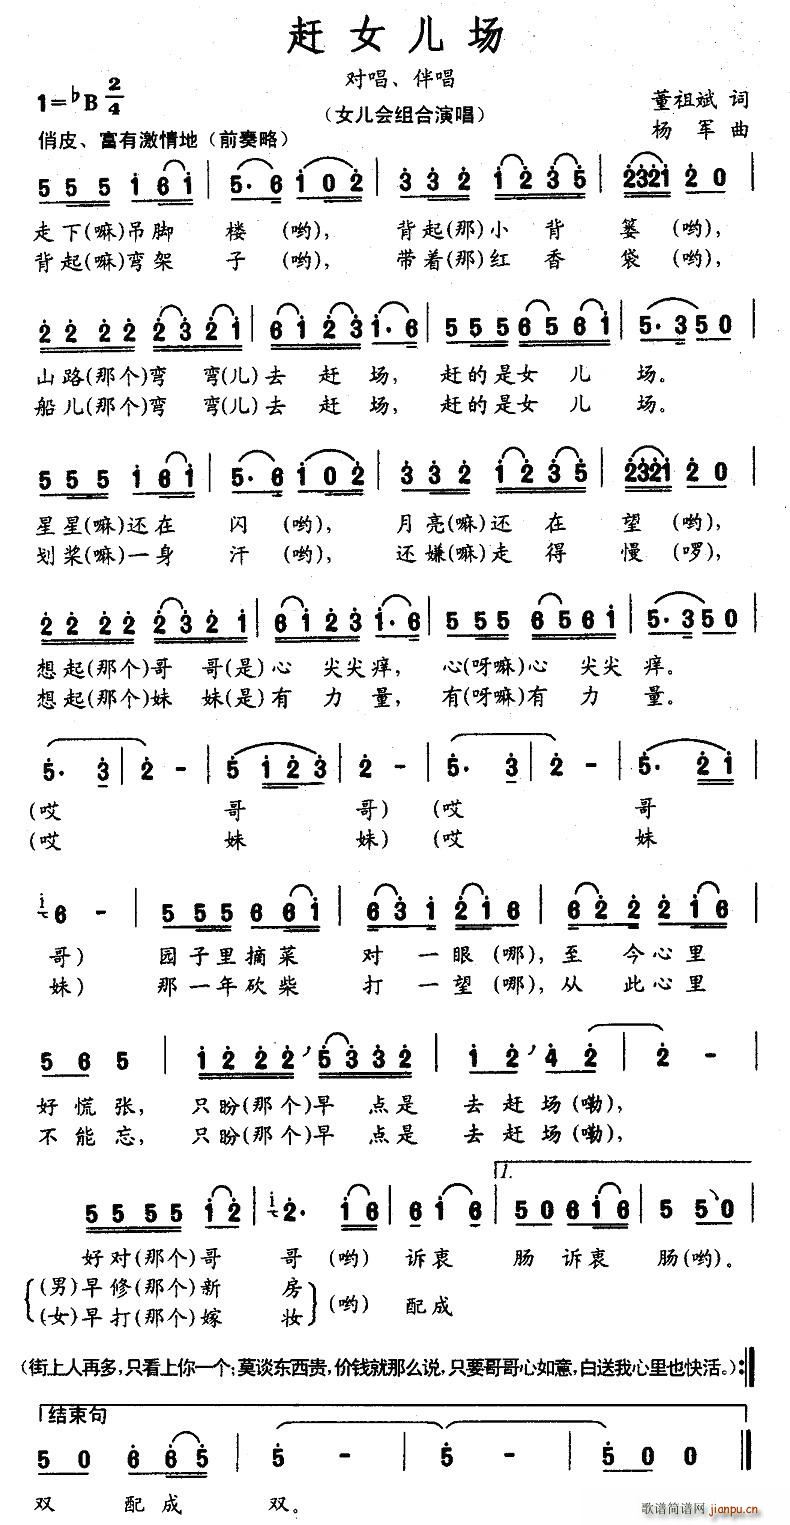 赶女儿场
对唱、伴唱
1=♭B 2/4
(女儿会组合演唱)
董祖斌 词
杨军 曲
俏皮、富有激情地(前奏略)
走下(嘛)吊脚楼(哟),背起(那)小背篓(哟),
背起(嘛)弯架子(哟),带着(那)红香袋(哟),
山路(那个)弯弯(儿)去赶场,赶的是女儿场。
船儿(那个)弯弯(儿)去赶场,赶的是女儿场。
星星(嘛)还在闪(哟),月亮(嘛)还在望(哟),
划桨(嘛)一身汗(哟),还嫌(嘛)走得慢(啰),
想起(那个)哥哥(是)心尖尖痒,心(呀嘛)心尖尖痒。
想起(那个)妹妹(是)有力量,有(呀嘛)有力量。
(哎哥哥)(哎哥
(哎妹妹)(哎妹
哥)园子里摘菜对一眼(哪),至今心里
妹)那一年砍柴打一望(哪),从此心里
好慌张,只盼(那个)早点是去赶场(嘞),
不能忘,只盼(那个)早点是去赶场(嘞),
1.
好对(那个)哥哥(哟)诉衷肠诉衷肠(哟)。
(男)早修(那个)新房
(女)早打(那个)嫁妆
(哟)配成
(街上人再多,只看上你一个;莫谈东西贵,价钱就那么说,只要哥哥心如意,白送我心里也快活。)
结束句
双配成双。
歌谱简谱网 jianpu.cn